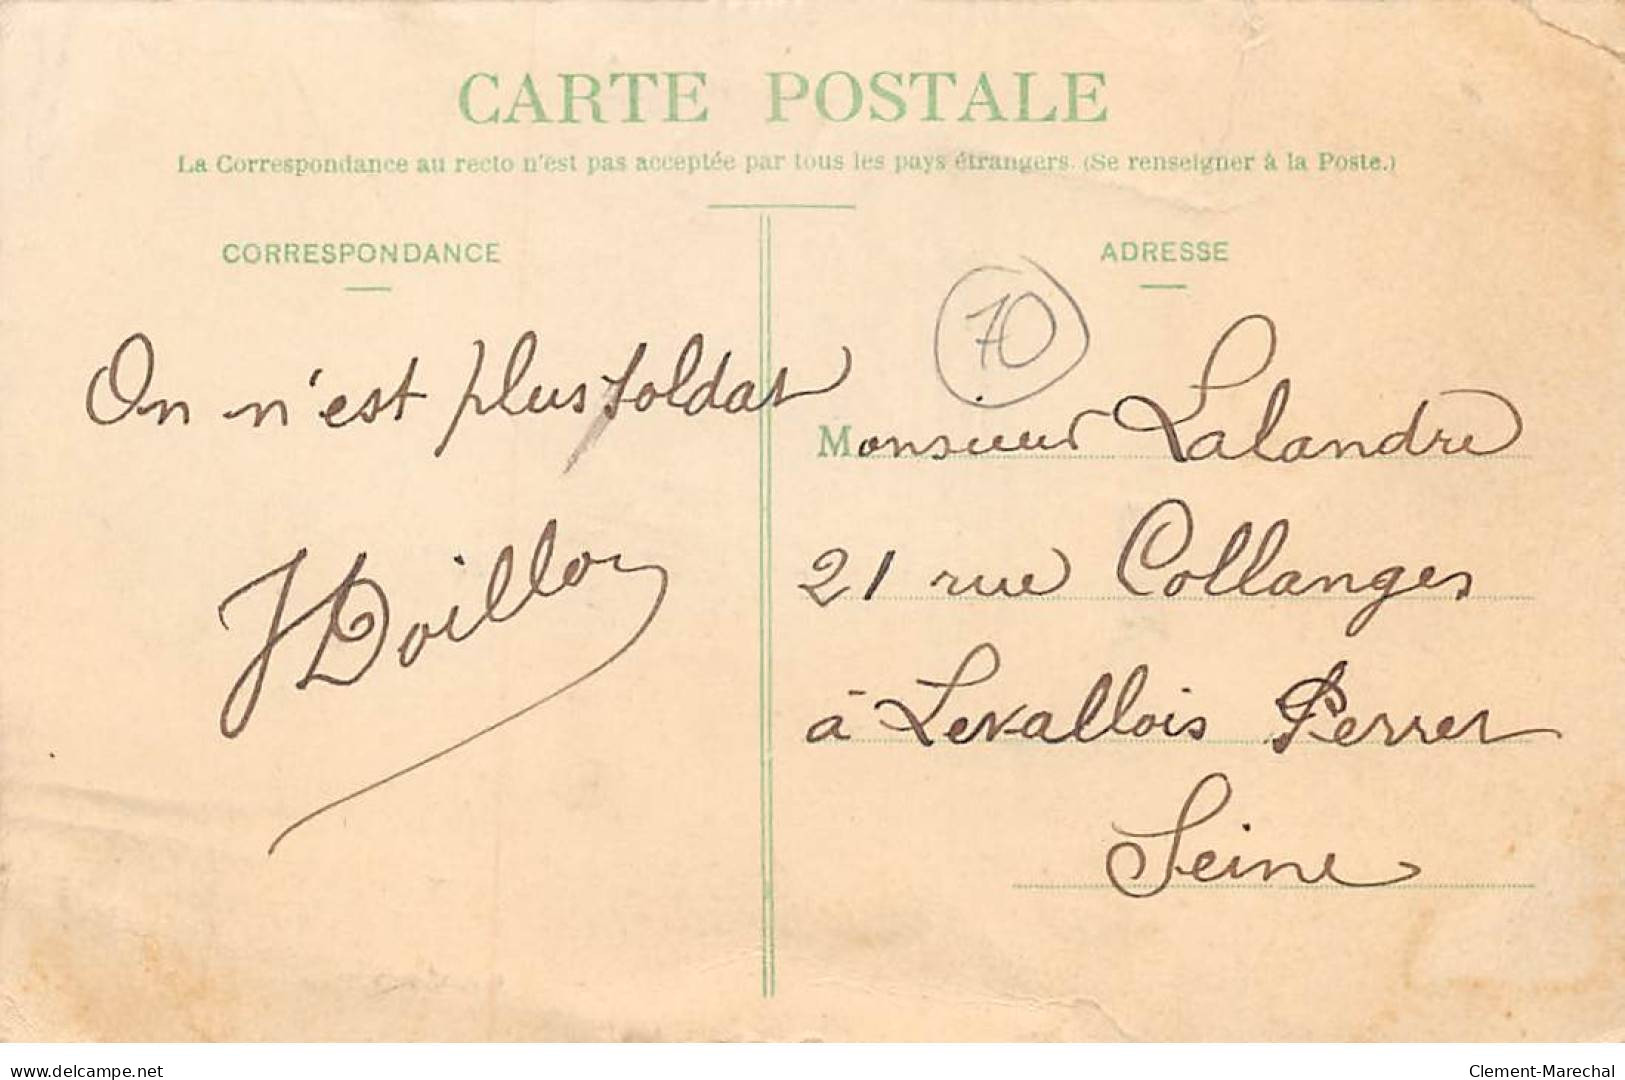 CARTE POSTALE
La Correspondance au recto n'est pas acceptée par tous les pays étrangers. (Se renseigner à la Poste.)
CORRESPONDANCE
On n'est plus soldat
J Doillon
ADRESSE
70
Monsieur Lalandre
21 rue Collanges
à Levallois Perret
Seine
www.delcampe.net
Clement-Marechal